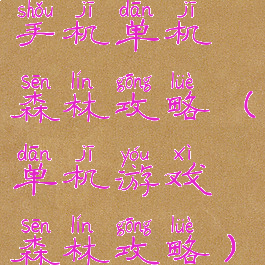 shǒu jī dān jī
手机单机
sēn lín gōng lüè
森林攻略（
dān jī yóu xì
单机游戏
sēn lín gōng lüè
森林攻略）